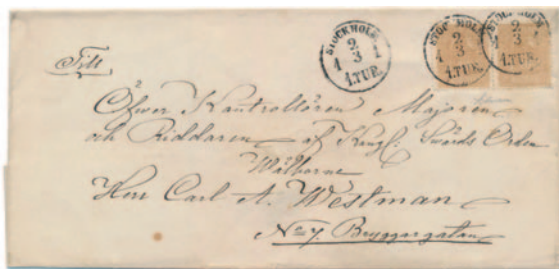 STOCKHOLM 1 2/3 1 1.TUR.
STOCKHOLM 1 2/3 1 1.TUR.
STOCKHOLM 2/3 1 1.TUR.
Till
Öfwer Kontrollören Majoren
och Riddaren af Kungl: Swärds Orden
Wälborne
Herr Carl A. Westman
No 7. Bryggargatan